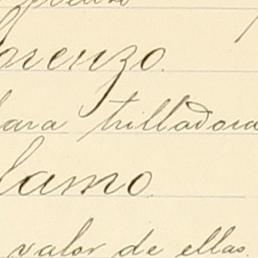 orenzo.
para trilladora
lamo.
valor de ellas.